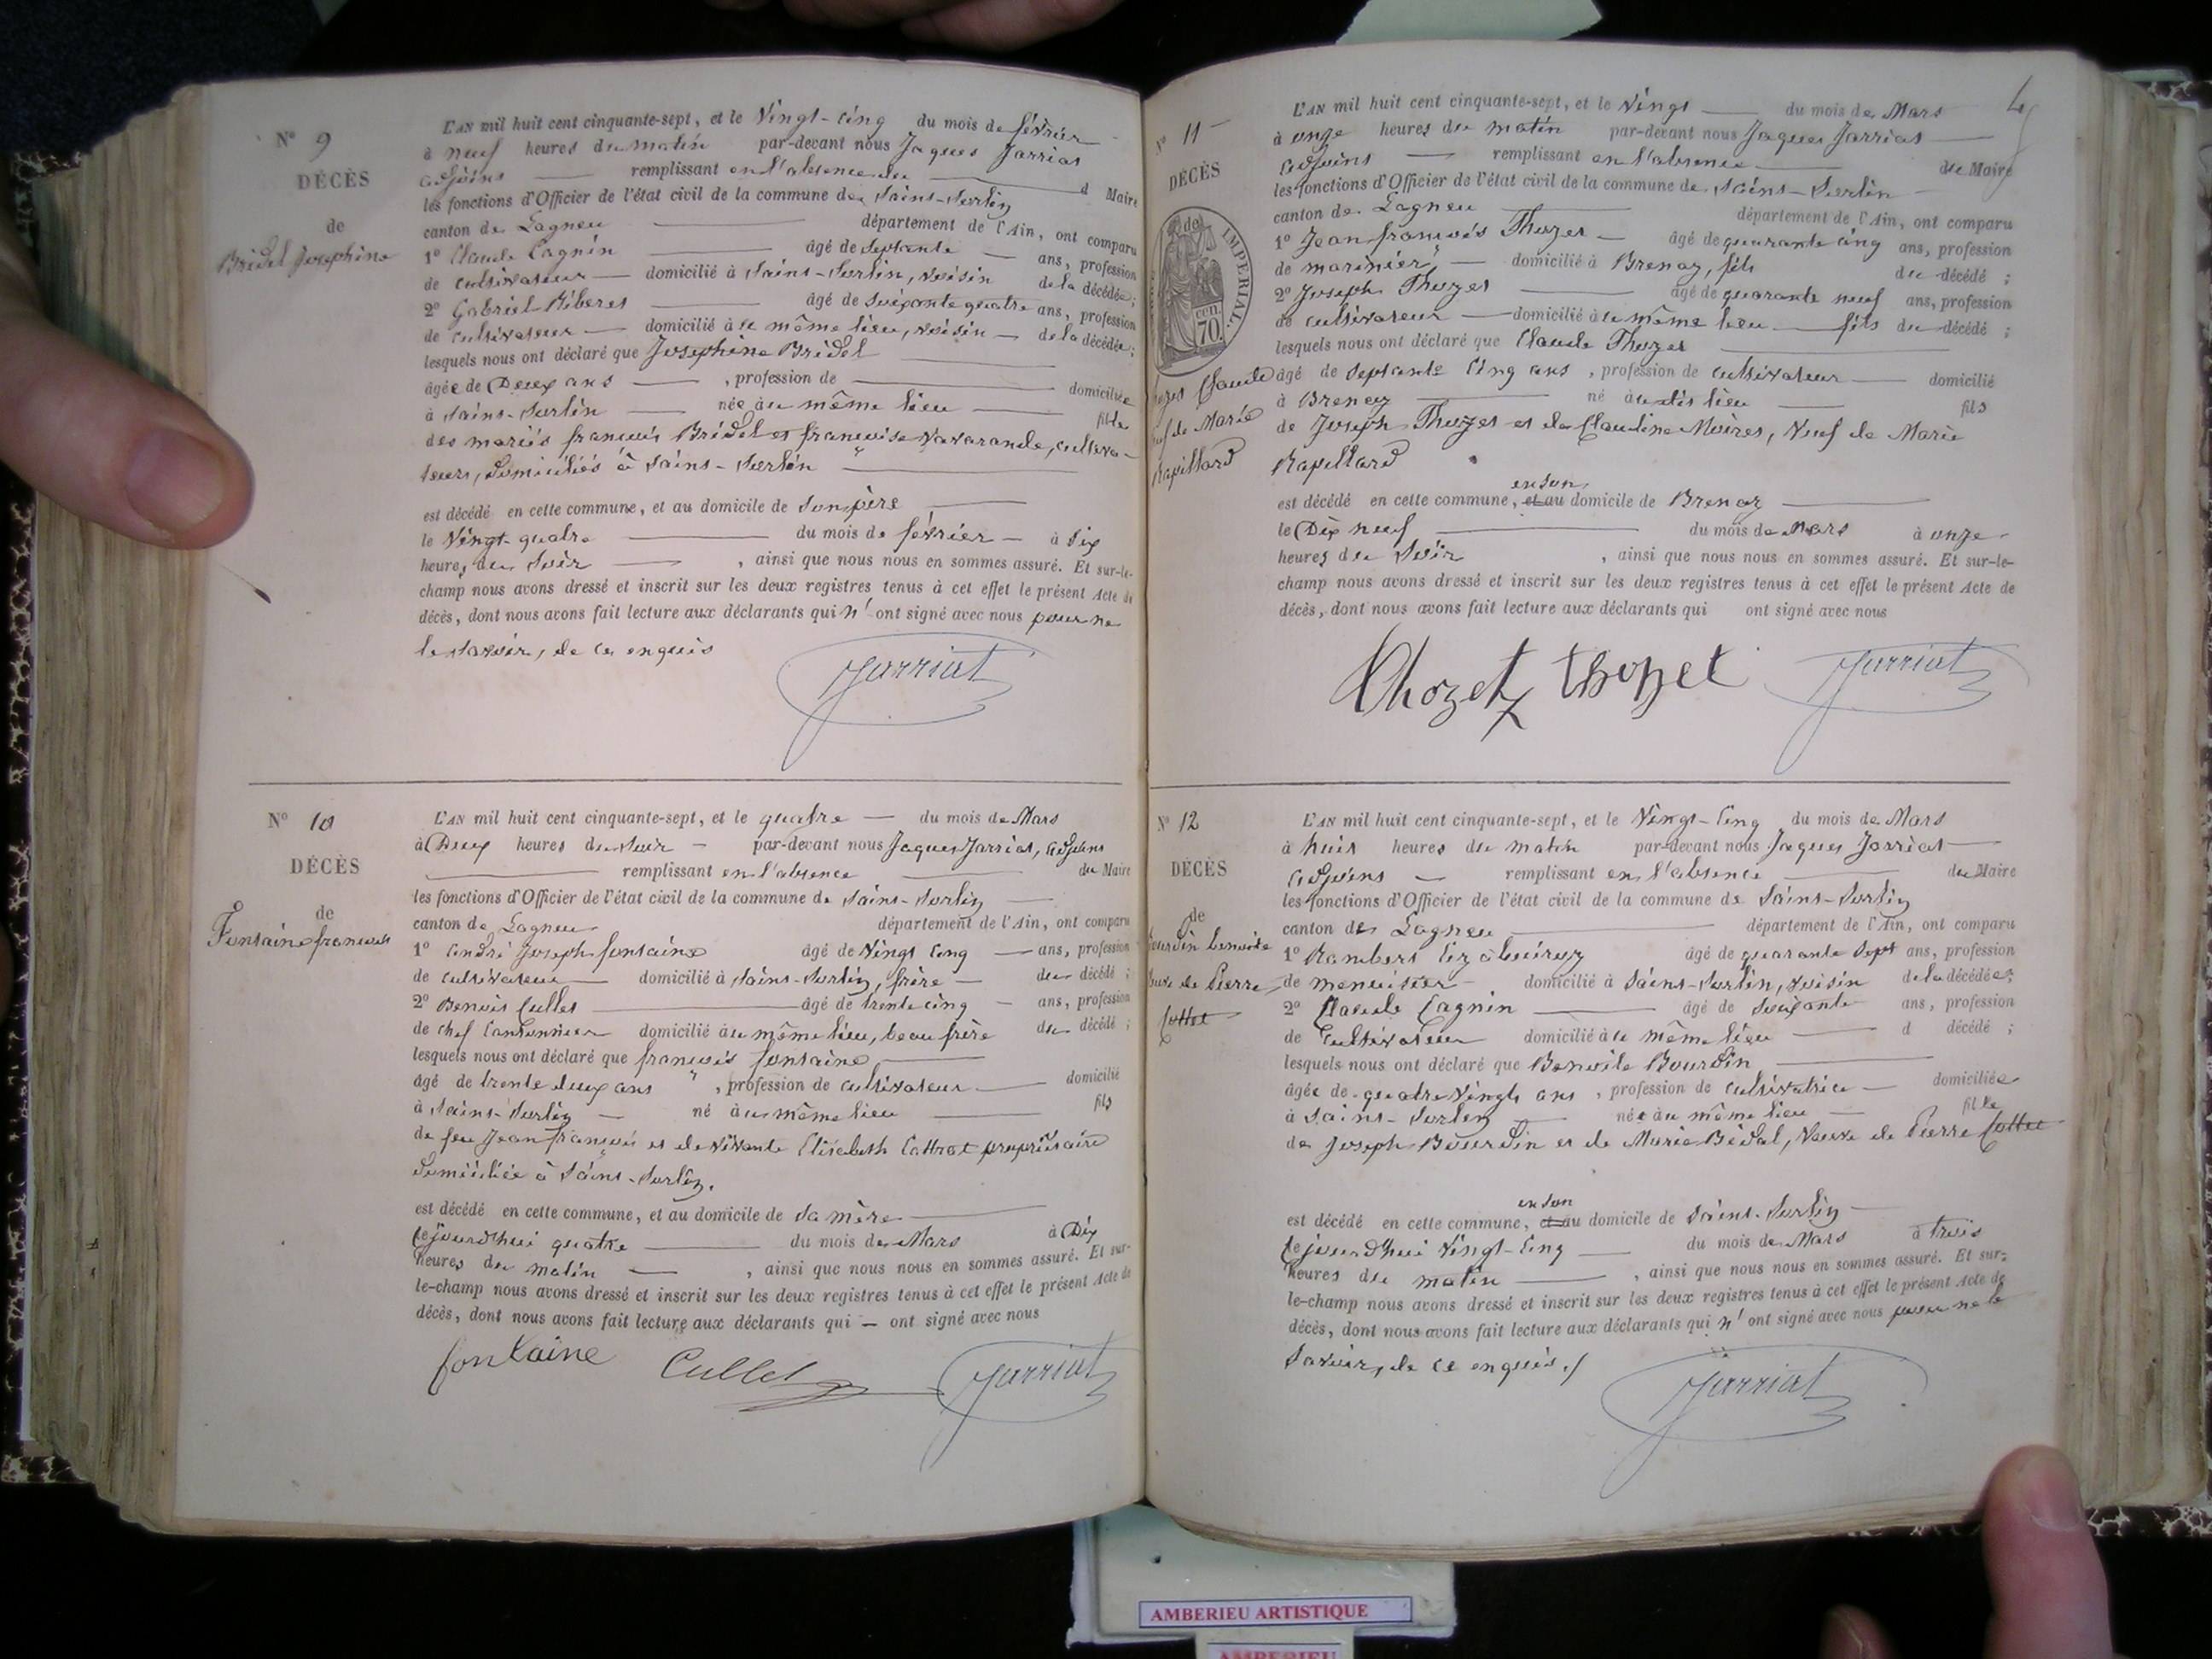 N° 9
DÉCÈS
de
Bridel Josephine
L'AN mil huit cent cinquante-sept, et le Vingt-Cinq du mois de février
à neuf heures du matin par-devant nous Jaques Jarriat
adjoint remplissant en l'absence du d Maire
les fonctions d'Officier de l'état civil de la commune de Saint-Sorlin
canton de Lagneu département de l'Ain, ont comparu
1° Claude Cagnin âgé de Septante ans, profession
de cultivateur domicilié à Saint-Sorlin, voisin de la décédée;
2° Gabriel Riberet âgé de Soixante quatre ans, profession
de cultivateur domicilié à ce même lieu, voisin de la décédée;
lesquels nous ont déclaré que Josephine Bridel
âgée de Deux ans , profession de domiciliée
à Saint-Sorlin née à ce même lieu fille
des mariés françois Bridel et françoise Navarande, cultiva-
teurs, domiciliés à Saint-Sorlin
est décédé en cette commune, et au domicile de Son père
le Vingt-quatre du mois de février à Six
heures du Soir , ainsi que nous nous en sommes assuré. Et sur-le-
champ nous avons dressé et inscrit sur les deux registres tenus à cet effet le présent Acte de
décès, dont nous avons fait lecture aux déclarants qui n' ont signé avec nous pour ne
le Savoir, de ce enquis
Jarriat
N° 10
DÉCÈS
de
Fontaine françois
L'AN mil huit cent cinquante-sept, et le quatre du mois de Mars
à Deux heures du Soir par-devant nous Jaques Jarriat, adjoint
remplissant en l'absence du Maire
les fonctions d'Officier de l'état civil de la commune de Saint-Sorlin
canton de Lagneu département de l'Ain, ont comparu
1° André Joseph fontaine âgé de Vingt Cinq ans, profession
de cultivateur domicilié à Saint-Sorlin, frère du décédé ;
2° Benoit Cullet âgé de trente cinq ans, profession
de chef Cantonnier domicilié à ce même lieu, beau frère du décédé ;
lesquels nous ont déclaré que françois fontaine
âgé de trente deux ans , profession de cultivateur domicilié
à Saint-Sorlin né à ce même lieu fils
de feu Jean françois et de vivante Elisabeth Cottrat propriétaire
Domiciliée à Saint-Sorlin.
est décédé en cette commune, et au domicile de Sa mère
Cejourd'hui quatre du mois de Mars à Dix
heures du matin , ainsi que nous nous en sommes assuré. Et sur-
le-champ nous avons dressé et inscrit sur les deux registres tenus à cet effet le présent Acte de
décès, dont nous avons fait lecture aux déclarants qui – ont signé avec nous
fontaine Cullet Jarriat
4
N° 11
DÉCÈS
de
IMPERIAL.
cen.
70.
Claude
de Marie
Rapillard
L'AN mil huit cent cinquante-sept, et le Vingt du mois de Mars
à onze heures du matin par-devant nous Jaques Jarriat
adjoint remplissant en l'absence du Maire
les fonctions d'Officier de l'état civil de la commune de Saint-Sorlin
canton de Lagneu département de l'Ain, ont comparu
1° Jean françois Thozet âgé de quarante cinq ans, profession
de marinier, domicilié à Brenaz, fils du décédé ;
2° Joseph Thozet âgé de quarante neuf ans, profession
de cultivateur domicilié à ce même lieu fils du décédé ;
lesquels nous ont déclaré que Claude Thozet
âgé de Septante Cinq ans , profession de cultivateur domicilié
à Brenaz né au dit lieu fils
de Joseph Thozet et de Claudine Moiret, Veuf de Marie
Rapillard
en son
est décédé en cette commune, et au domicile de Brenaz
le Dix neuf du mois de Mars à onze
heures du Soir , ainsi que nous nous en sommes assuré. Et sur-le-
champ nous avons dressé et inscrit sur les deux registres tenus à cet effet le présent Acte de
décès, dont nous avons fait lecture aux déclarants qui ont signé avec nous
Thozet thozet Jarriat
N° 12
DÉCÈS
de
Benoite
de Pierre
Cottet
L'AN mil huit cent cinquante-sept, et le Vingt-Cinq du mois de Mars
à huit heures du matin par-devant nous Jaques Jarriat
adjoint remplissant en l'absence du Maire
les fonctions d'Officier de l'état civil de la commune de Saint-Sorlin
canton de Lagneu département de l'Ain, ont comparu
1° Rambert âgé de quarante Sept ans, profession
de menuisier domicilié à Saint-Sorlin, voisin de la décédée;
2° Claude Cagnin âgé de Soixante ans, profession
de Cultivateur domicilié à ce même lieu d décédé ;
lesquels nous ont déclaré que Benoite Bourdin
âgée de quatre Vingts ans , profession de cultivatrice domiciliée
à Saint-Sorlin née à ce même lieu fille
de Joseph Bourdin et de Marie Bédal, Veuve de Pierre Cottet
en son
est décédé en cette commune, et au domicile de Saint-Sorlin
Cejourd'hui Vingt-Cinq du mois de Mars à trois
heures du matin , ainsi que nous nous en sommes assuré. Et sur-
le-champ nous avons dressé et inscrit sur les deux registres tenus à cet effet le présent Acte de
décès, dont nous avons fait lecture aux déclarants qui n' ont signé avec nous pour ne le
Savoir, de ce enquis./
Jarriat
AMBERIEU ARTISTIQUE
AMBERIEU